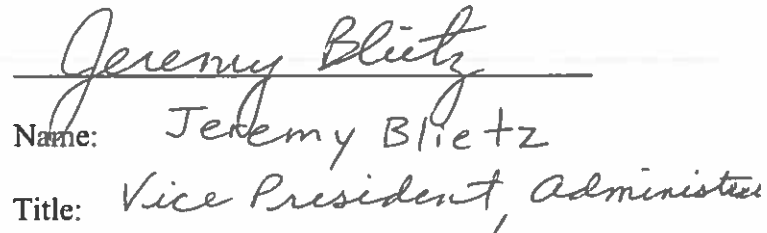 Jeremy Blietz
Name: Jeremy Blietz
Title: Vice President,